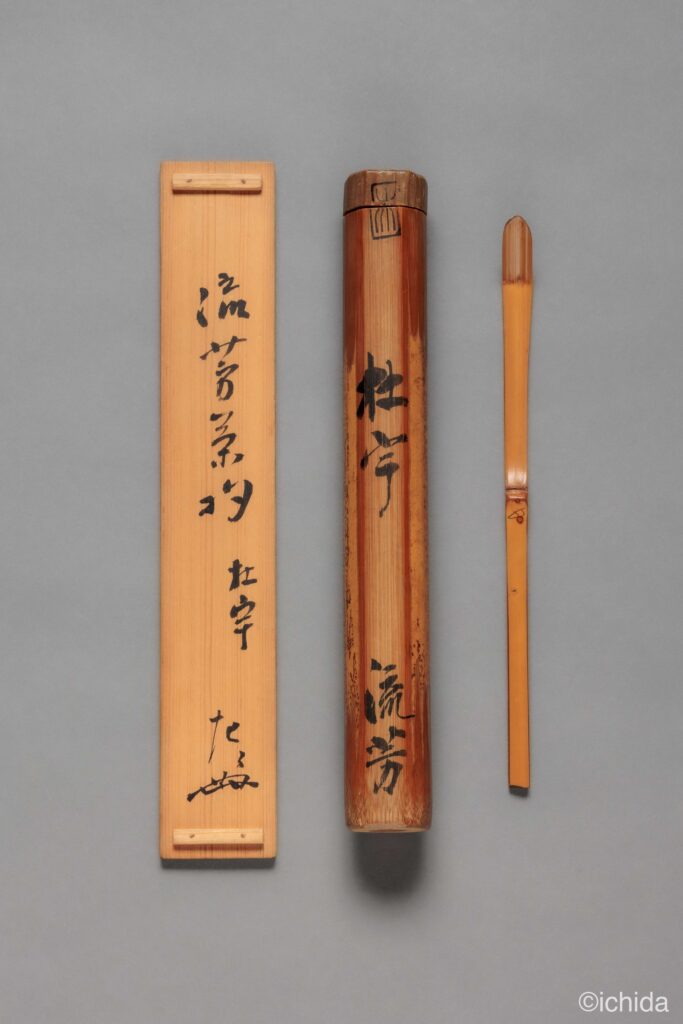 流芳茶杓
杜宇
杜宇
流芳
©ichida